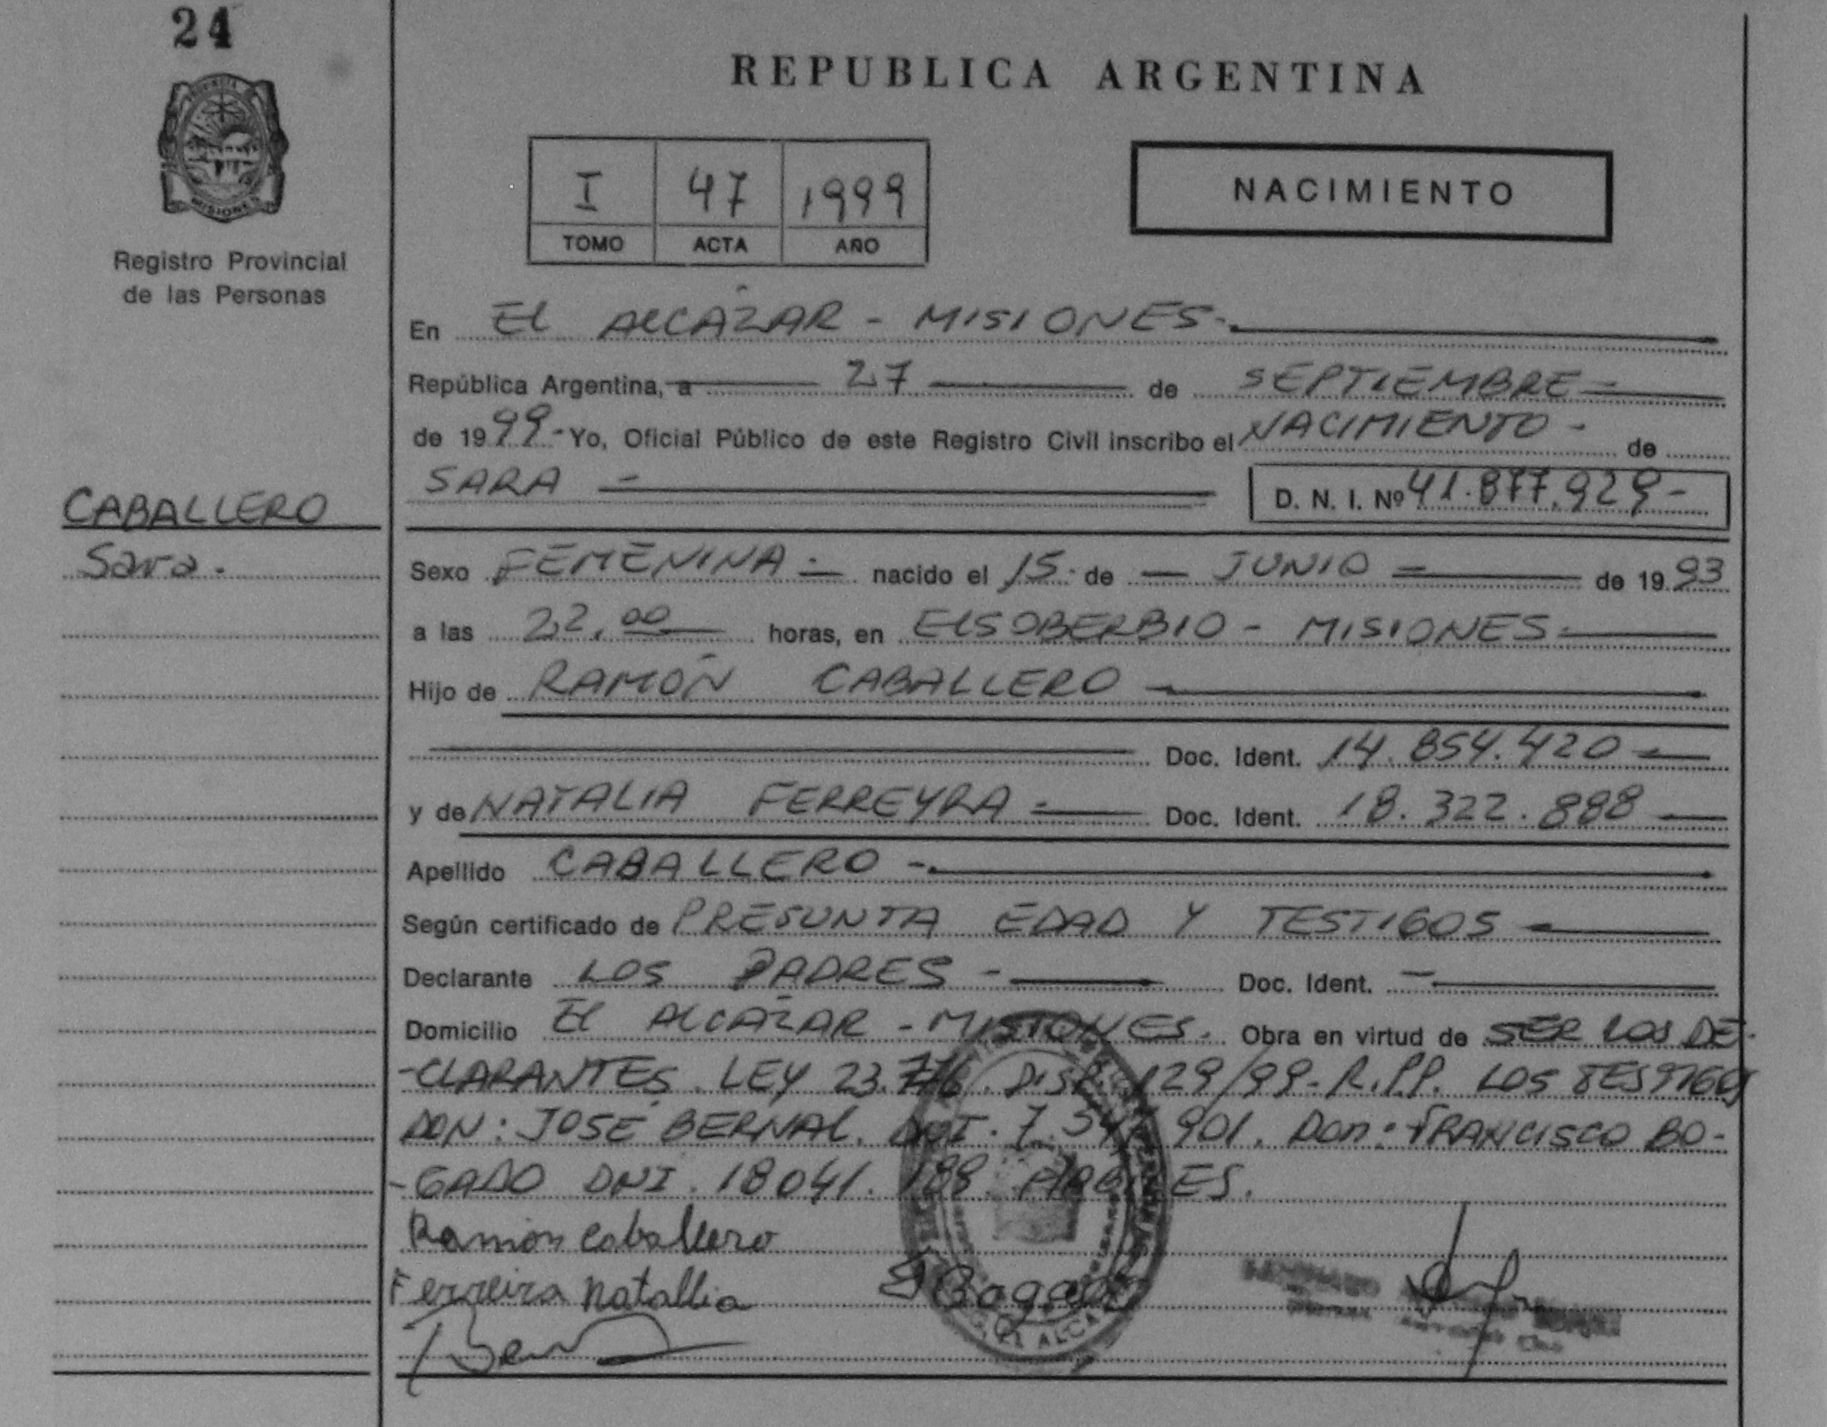 24
PROVINCIA
MISIONES
Registro Provincial
de las Personas
REPUBLICA ARGENTINA
I 47 1999
TOMO ACTA AÑO
NACIMIENTO
En El ALCÁZAR - MISIONES-
República Argentina, a 27 de SEPTIEMBRE
de 1999- Yo, Oficial Público de este Registro Civil inscribo el NACIMIENTO - de
SARA - D. N. I. Nº 41.877.929-
CABALLERO
Sara.
Sexo FEMENINA - nacido el 15 de - JUNIO - de 1993
a las 22,00 horas, en ElSOBERBIO - MISIONES-
Hijo de RAMÓN CABALLERO -
Doc. Ident. 14.854.420 -
y de NATALIA FERREYRA - Doc. Ident. 18.322.888 -
Apellido CABALLERO -
Según certificado de PRESUNTA EDAD Y TESTIGOS -
Declarante LOS PADRES - Doc. Ident. -
Domicilio El ALCÁZAR - MISIONES. Obra en virtud de SER LOS DE-
-CLARANTES. LEY 23.776. DISP. 129/99- R.P.P. LOS TESTIGOS
DON: JOSÉ BERNAL. 7.547.901. Don: FRANCISCO BO-
-GADO DNI. 18041.188 HÁBILES.
Ramón Caballero
Ferreira Natallia Bogado